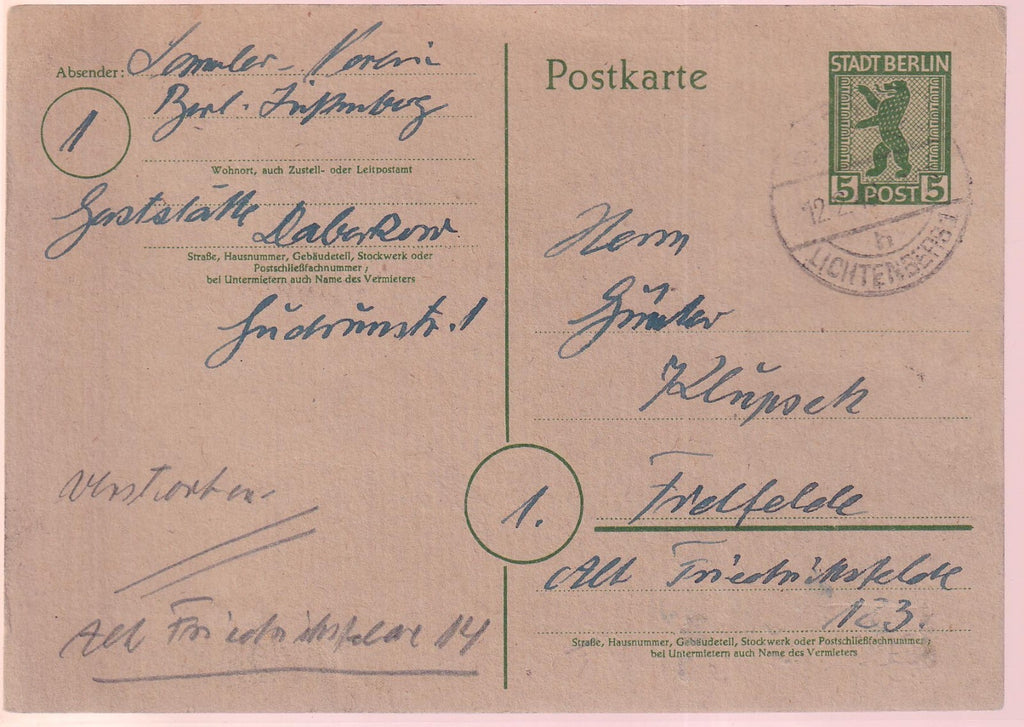 Absender: Sammler-Verein
1
Berl. Lichtenberg
Wohnort, auch Zustell- oder Leitpostamt
Gaststätte Daberkow
Straße, Hausnummer, Gebäudeteil, Stockwerk oder
Postschließfachnummer;
bei Untermietern auch Name des Vermieters
Gudrunstr. 1
verstorben
Alt Friedrichsfelde 14
Postkarte
STADT BERLIN
5 POST 5
12.2.
b
LICHTENBERG 1
Herrn
Günter
Klupsch
1.
Frdlfelde
Alt Friedrichsfelde
123.
Straße, Hausnummer, Gebäudeteil, Stockwerk oder Postschließfachnummer;
bei Untermietern auch Name des Vermieters